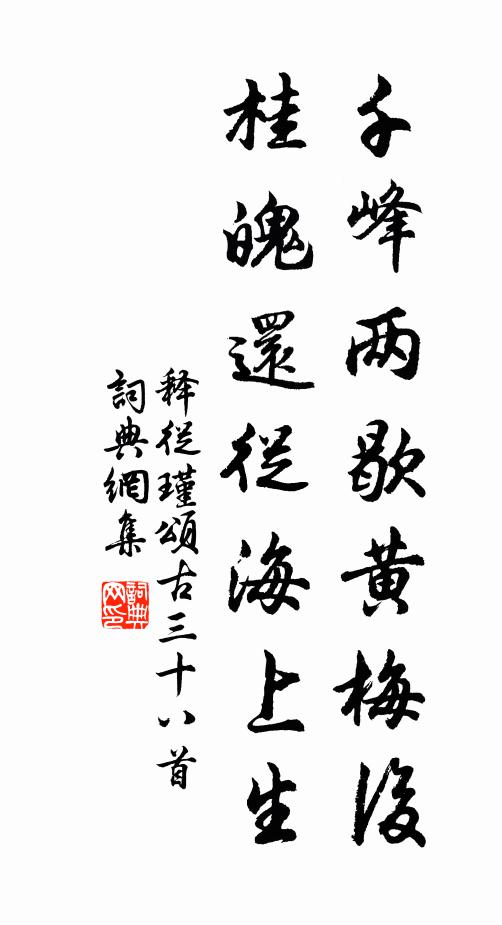 千峰两歇黄梅後
桂魄還從海上生
释從瑾頌古三十八首
詞典網集
詞典网印